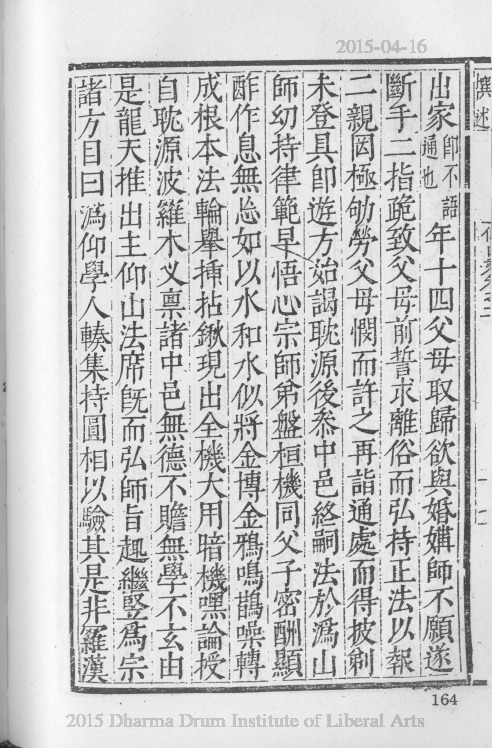 2015-04-16
撰述
出家即不語通也年十四父母取歸欲與婚媾師不願遂
斷手二指跪致父母前誓求離俗而弘持正法以報
二親罔極劬勞父母憫而許之再詣通處而得披剃
未登具即遊方始謁耽源後叅中邑終嗣法於溈山
師幼持律範早悟心宗師弟盤桓機同父子密酬顯
酢作息無𢗅如以水和水似將金博金鴉鳴鵲噪轉
成根本法輪舉揷拈鍬現出全機大用暗機嘿論授
自耽源波羅木义禀諸中邑無德不贍無學不玄由
是龍天推出主仰山法席旣而弘師旨趣繼竪爲宗
諸方目曰溈仰學人輳集持圓相以驗其是非羅漢
164
2015 Dharma Drum Institute of Liberal Arts